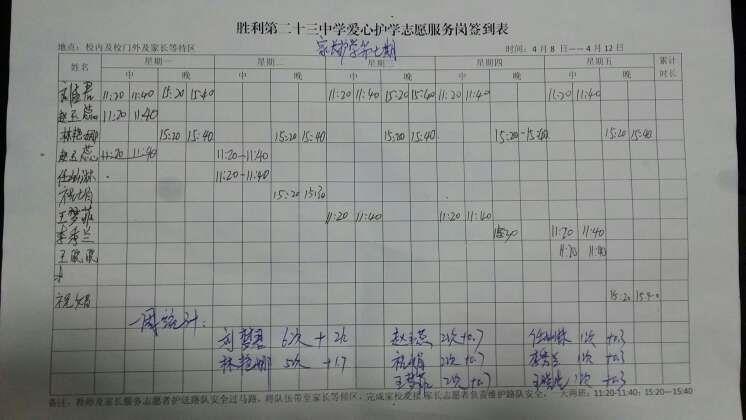 胜利第二十三中学爱心护学志愿服务岗签到表
家长护学第七期
地点：校内及校门外及家长等待区 时间：4月8日——4月12日
姓名 星期一 星期二 星期三 星期四 星期五 累计时长
中 晚 中 晚 中 晚 中 晚 中 晚
11:20 11:40 15:20 15:40 11:20 11:40 15:20 15:40 11:20 11:40 11:20 11:40
赵玉蕊 11:20 11:40
林艳娜 15:20 15:40 15:20 15:40 15:20 15:40 15:20-15:40 15:20 15:40
赵玉蕊 11:20 11:40 11:20-11:40
11:20-11:40
15:20 15:30
王梦菲 11:20 11:40 11:20 11:40
李秀兰 11:20 11:40
王晓晓 11:20 11:40
祝娟 15:20 15:40
一周统计：
刘 君 6次 +2 赵玉蕊 2次 +0.7 1次 +0.3
林艳娜 5次 +1.7 祝娟 2次 +0.7 李秀兰 1次 +0.3
王梦菲 2次 +0.7 王晓晓 1次 +0.3
备注：教师及家长服务志愿者护送路队安全过马路，将队伍带至家长等候区，完成家校爱接 家长志愿者负责维护路队安全， 大两班：11:20-11:40；15:20—15:40